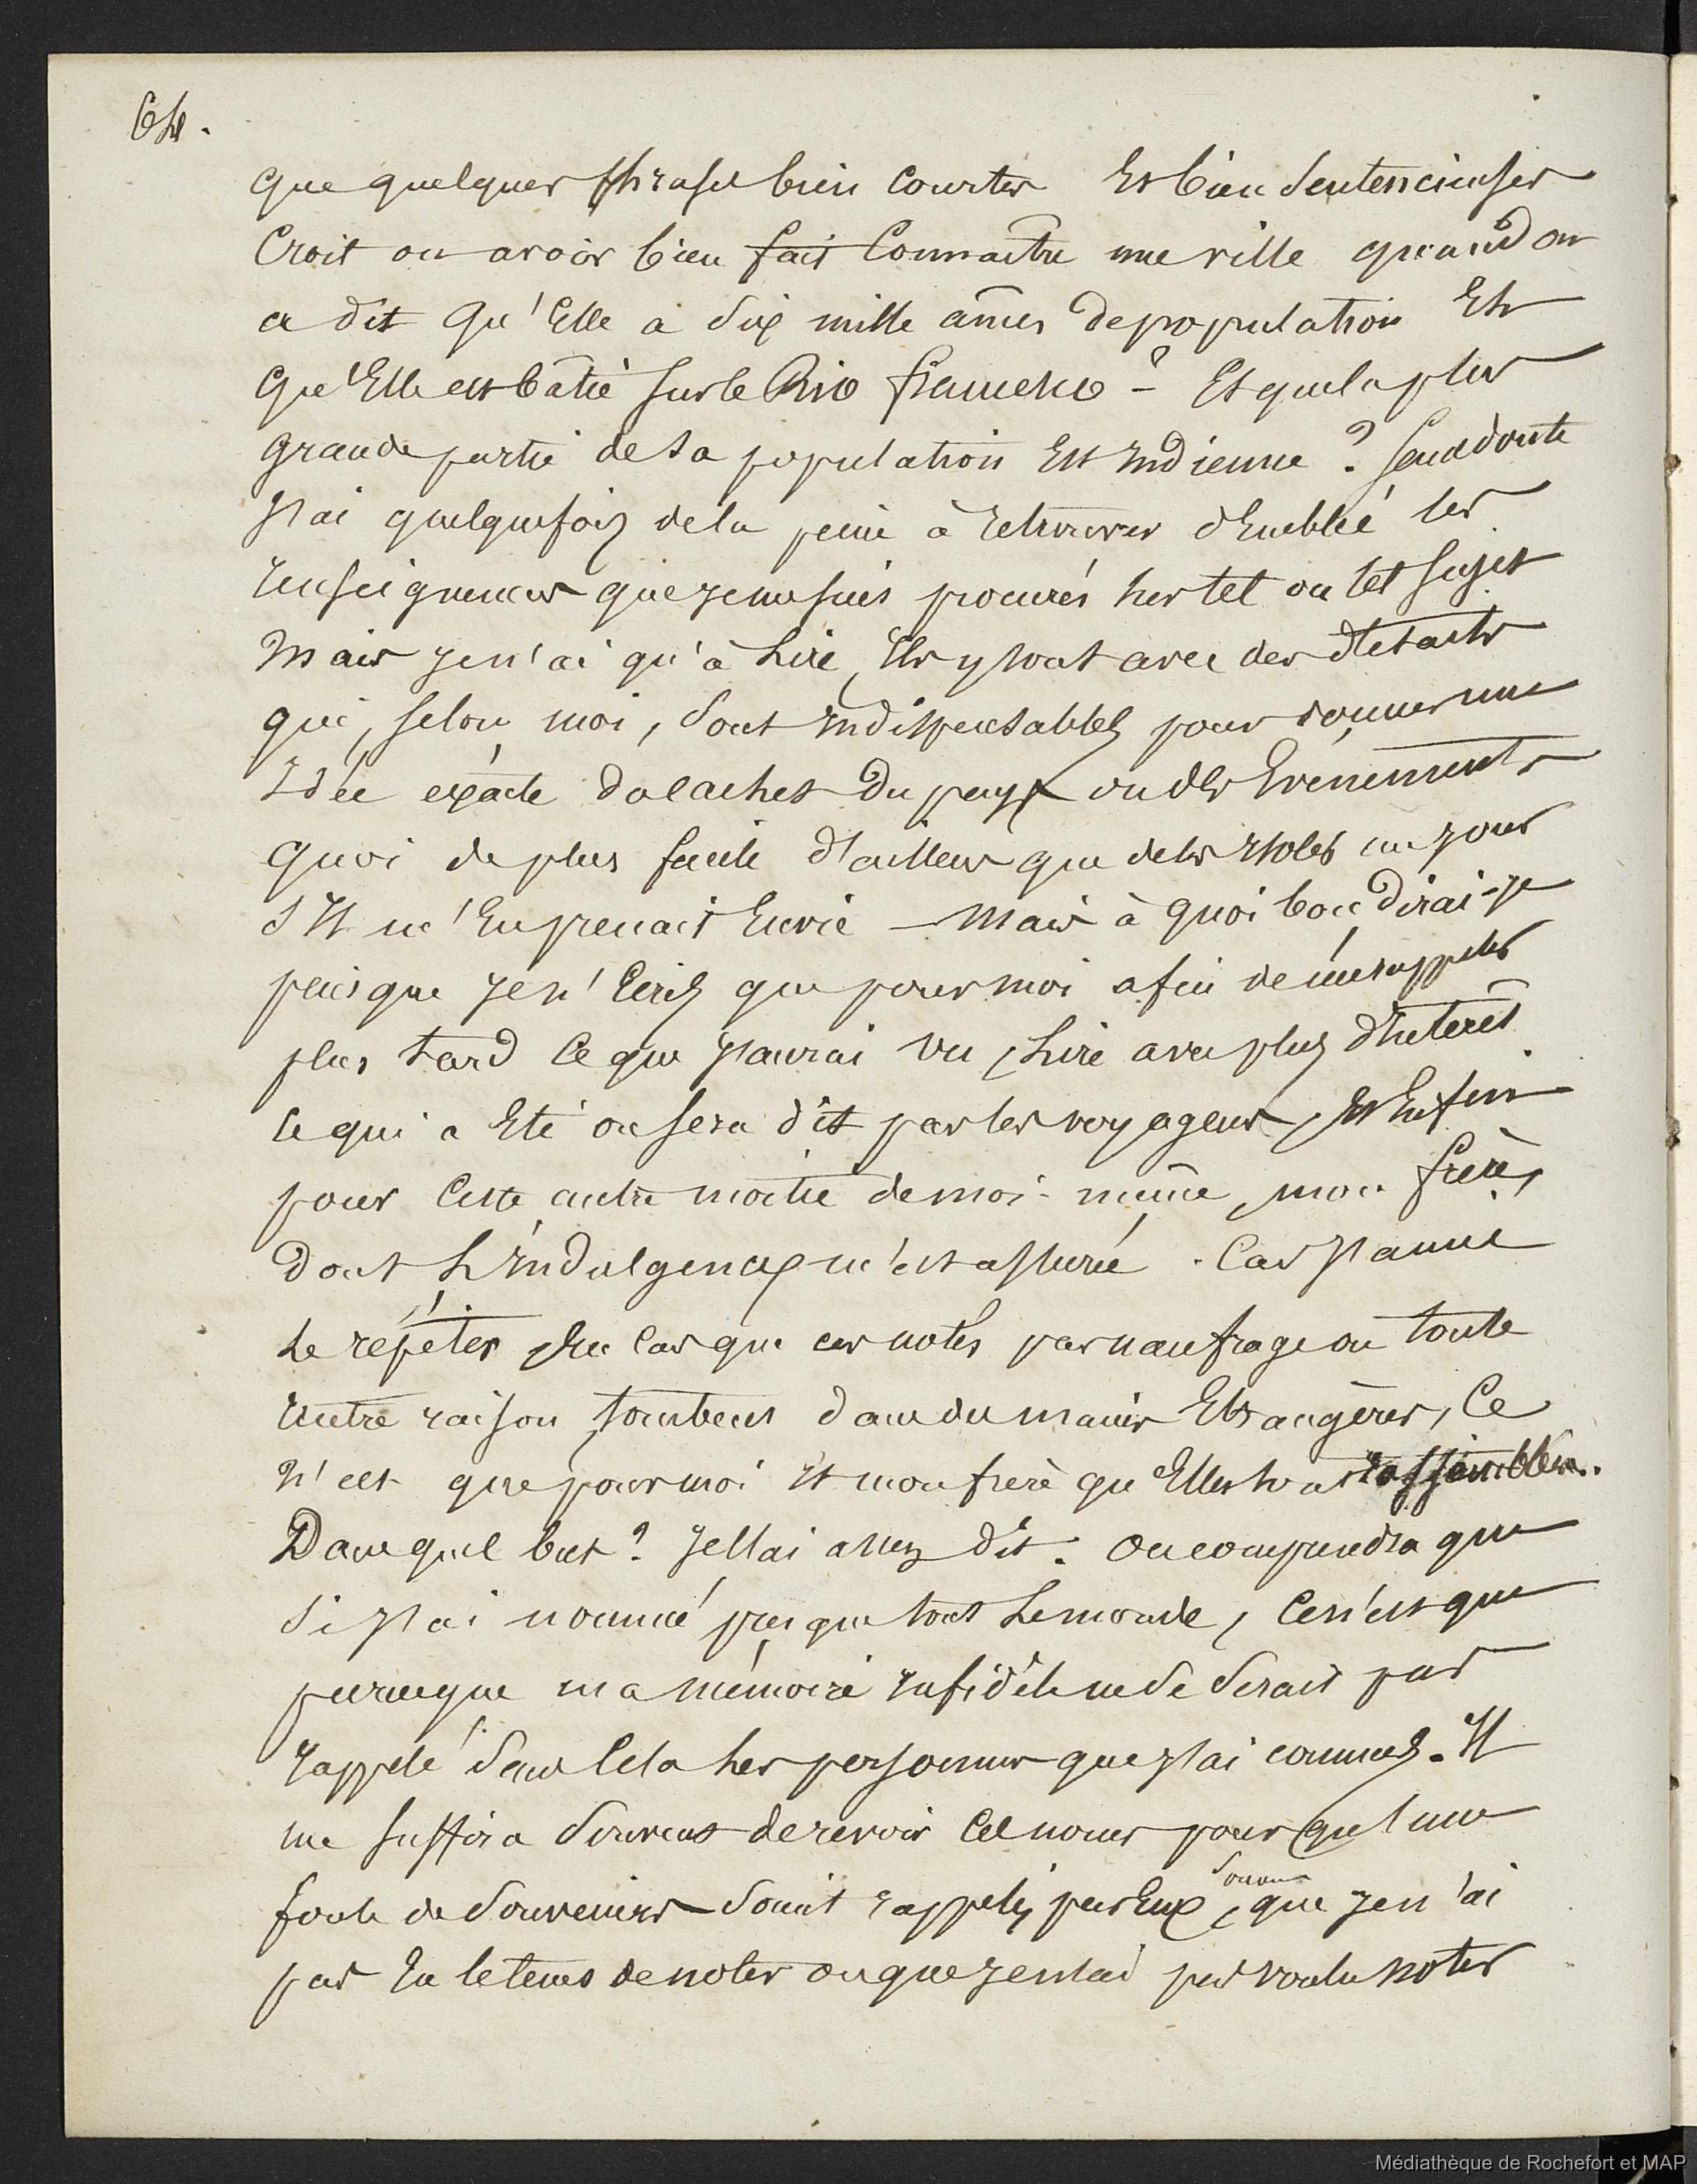 64.
que quelques phrases bien courtes et bien sentencieuses
Croit on avoir bien fait Connaitre une ville quand on
a dit qu'Elle a dix mille âmes de population Et
qu'Elle est bâtie sur le Rio ? Et que la plus
grande partie de sa population Est Indienne ? sans doute
J'ai quelquefois de la peine à retrouver d'Emblée les
renseignemens que je me suis procurés sur tel ou tel sujet
Mais je n'ai qu'à Lire, Ils y sont avec des détails
qui, selon moi, sont indispensables pour donner une
Idée exacte du pays ou des Evénements
quoi de plus facile d'ailleurs que de les isoler un jour
s'Il m'En prenait Envie — Mais à quoi bon dirai-je
puisque je n'Ecris que pour moi afin de me rappeler
plus tard Ce que J'aurai vu, Lire avec plus d'Interêt
Ce qui a Eté ou sera dit par les voyageurs, Et Enfin
pour Cette autre moitié de moi-même, mon frère,
Dont L'Indulgence m'est assurée. Car J'aime
Le répéter En Cas que ces notes par naufrage ou toute
autre raison tombent dans des mains Etrangères, Ce
N'est que pour moi Et mon frère qu'Elles sont rassemblées.
Dans quel but ? Je l'ai assez dit. On comprendra que
si J'ai nommé presque tout Le monde, Ce n'est que
parceque ma mémoire Infidèle ne se serait pas
rappelé sans Cela Les personnes que J'ai connues. Il
me suffira souvent de revoir Ces noms pour qu'une
foule de souvenirs soient rappelés par Eux, souvenirs que je n'ai
pas Eu le tems de noter ou que je n'ai pas voulu noter
Médiathèque de Rochefort et MAP